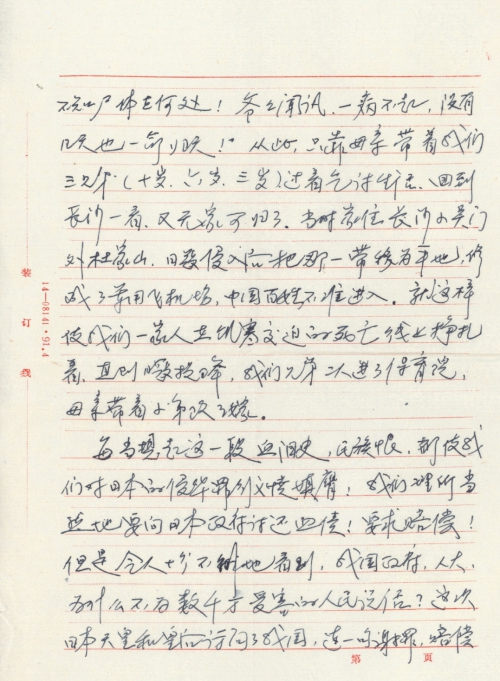 不知尸体在何处！爷爷闻讯，一病不起，没有
几天也一命归天！从此，只靠母亲带着我们
三兄弟（十岁、六岁、三岁）过着乞讨生活。回到
长沙一看，又无家可归了。当时家住长沙小吴门
外杜家山，日寇侵入后把那一带修为平地，修
成了军用飞机场，中国百姓不准进入。就这样
使我们一家人在饥寒交迫的死亡线上挣扎
着，直到日寇投降，我们兄弟二人进了保育院，
母亲带着小弟改了嫁。
每当想起这一段血泪史，民族恨，都使我
们对日本的侵华罪行义愤填膺！我们理所当
然地要向日本政府讨还血债！要求赔偿！
但是令人十分不解地看到，我国政府，人大，
为什么不为数千万受害的人民说话？这次
日本天皇和皇后访问了我国，连一句谢罪，赔偿
装订线
14—0814)·91.4
第 页